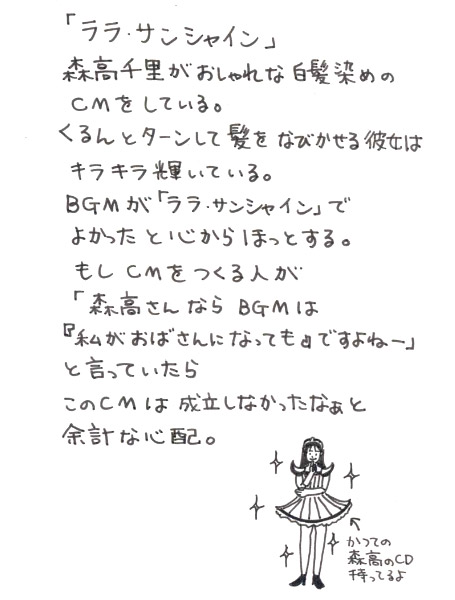 「ララ・サンシャイン」
森高千里がおしゃれな白髪染めの
CMをしている。
くるんとターンして髪をなびかせる彼女は
キラキラ輝いている。
BGMが「ララ・サンシャイン」で
よかったと心からほっとする。
もしCMをつくる人が
「森高さんならBGMは
『私がおばさんになっても』ですよねー」
と言っていたら
このCMは成立しなかったなぁと
余計な心配。
かつての
森高のCD
持ってるよ